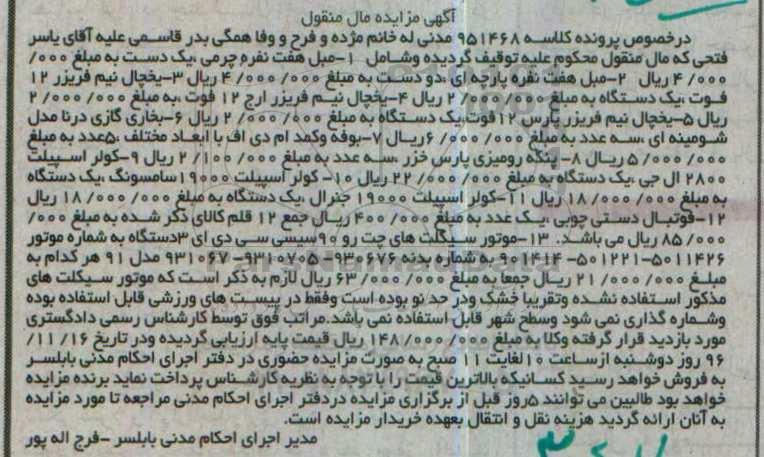 آگهی مزایده مال منقول
درخصوص پرونده کلاسه ۹۵۱۴۶۸ مدنی له خانم مژده و فرح و وفا همگی بدر قاسمی علیه آقای یاسر
فتحی که مال منقول محکوم علیه توقیف گردیده وشامل ۱-مبل هفت نفره چرمی ،یک دست به مبلغ ۰۰۰/
۴/۰۰۰ ریال ۲-مبل هفت نفره پارچه ای ،دو دست به مبلغ ۴/۰۰۰/۰۰۰ ریال ۳-یخچال نیم فریزر ۱۲
فوت ،یک دستگاه به مبلغ ۲/۰۰۰/۰۰۰ ریال ۴-یخچال نیم فریزر ارج ۱۲ فوت ،به مبلغ ۲/۰۰۰/۰۰۰
ریال ۵-یخچال نیم فریزر پارس ۱۲فوت،یک دستگاه به مبلغ ۲/۰۰۰/۰۰۰ ریال ۶-بخاری گازی درنا مدل
شومینه ای ،سه عدد به مبلغ ۶/۰۰۰/۰۰۰ریال ۷-بوفه وکمد ام دی اف با ابعاد مختلف ،۵عدد به مبلغ
۵/۰۰۰/۰۰۰ ریال ۸- پنکه رومیزی پارس خزر ،سه عدد به مبلغ ۲/۱۰۰/۰۰۰ ریال ۹-کولر اسپیلت
۲۸۰۰ ال جی ،یک دستگاه به مبلغ ۲۲/۰۰۰/۰۰۰ ریال ۱۰- کولر اسپیلت ۱۹۰۰۰سامسونگ ،یک دستگاه
به مبلغ ۱۸/۰۰۰/۰۰۰ ریال ۱۱-کولر اسپیلت ۱۹۰۰۰ جنرال ،یک دستگاه به مبلغ ۱۸/۰۰۰/۰۰۰ ریال
۱۲-فوتبال دستی چوبی ،یک عدد به مبلغ ۴۰۰/۰۰۰ ریال جمع ۱۲ قلم کالای ذکر شده به مبلغ ۰۰۰/
۸۵/۰۰۰ ریال می باشد. ۱۳-موتور سیکلت های جت رو ۹۰سیسی سی دی ای ۳دستگاه به شماره موتور
۵۰۱۱۴۲۶-۵۰۱۲۲۱-۹۰۱۴۱۴ به شماره بدنه ۹۳۰۶۷۶-۹۳۱۰۷۰۵-۹۳۱۰۶۷ مدل ۹۱ هر کدام به
مبلغ ۲۱/۰۰۰/۰۰۰ ریال جمعا به مبلغ ۶۳/۰۰۰/۰۰۰ ریال لازم به ذکر است که موتور سیکلت های
مذکور استفاده نشده وتقریبا خشک ودر حد نو بوده است وفقط در پیست های ورزشی قابل استفاده بوده
وشماره گذاری نمی شود وسطح شهر قابل استفاده نمی باشد.مراتب فوق توسط کارشناس رسمی دادگستری
مورد بازدید قرار گرفته وکلا به مبلغ ۱۴۸/۰۰۰/۰۰۰ ریال قیمت پایه ارزیابی گردیده ودر تاریخ ۱۶/ ۱۱/
۹۶ روز دوشنبه ازساعت ۱۰لغایت ۱۱ صبح به صورت مزایده حضوری در دفتر اجرای احکام مدنی بابلسر
به فروش خواهد رسید کسانیکه بالاترین قیمت را با توجه به نظریه کارشناس پرداخت نماید برنده مزایده
خواهد بود طالبین می توانند ۵روز قبل از برگزاری مزایده دردفتر اجرای احکام مدنی مراجعه تا مورد مزایده
به آنان ارائه گردید هزینه نقل و انتقال بعهده خریدار مزایده است.
مدیر اجرای احکام مدنی بابلسر -فرج اله پور